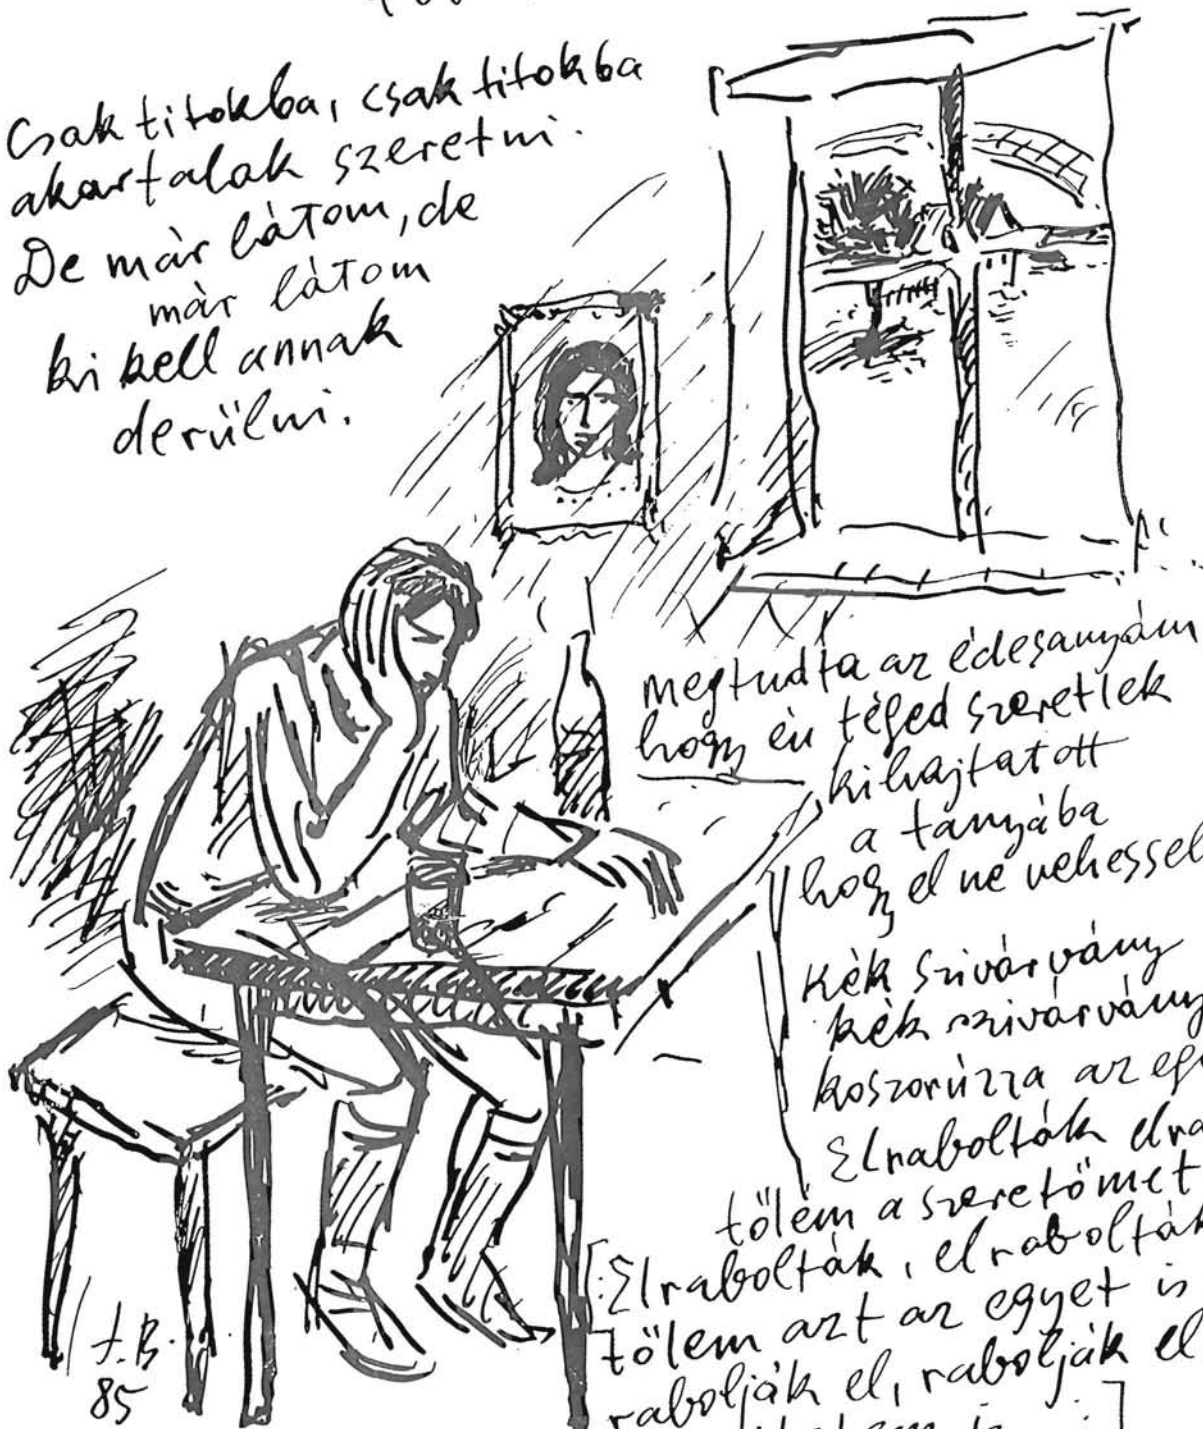 Csak titokba, csak titokba
akartalak szeretni.
De már látom, de
már látom
ki kell annak
derülni.
megtudta az édesanyám
hogy én téged szeretlek
kihajtatott
a tanyába
hogy el ne vehessel
Kék szivárvány
kék szivárvány
koszorúzza az eg
Elrabolták elra
tőlem a szeretőmet
Elrabolták, elrabolták
tőlem azt az egyet is
rabolják el, rabolják el
t.B.
85